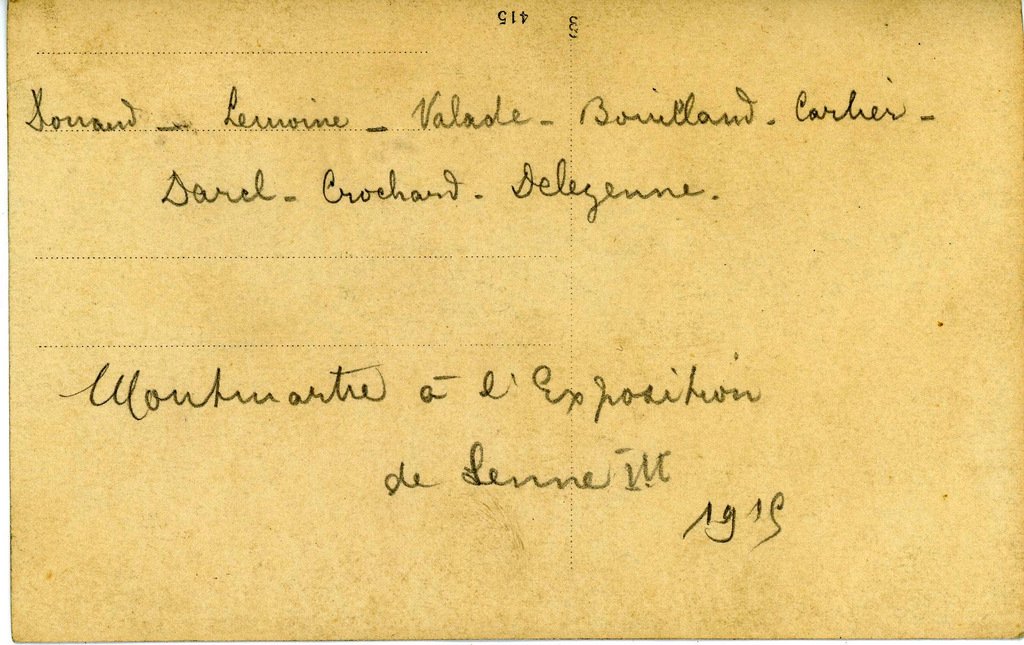 415
Douaud - Lemoine - Valade - Bouilland - Carlier -
Darel - Crochard - Delezenne.
Montmartre à l'Exposition
de Senne III
1915